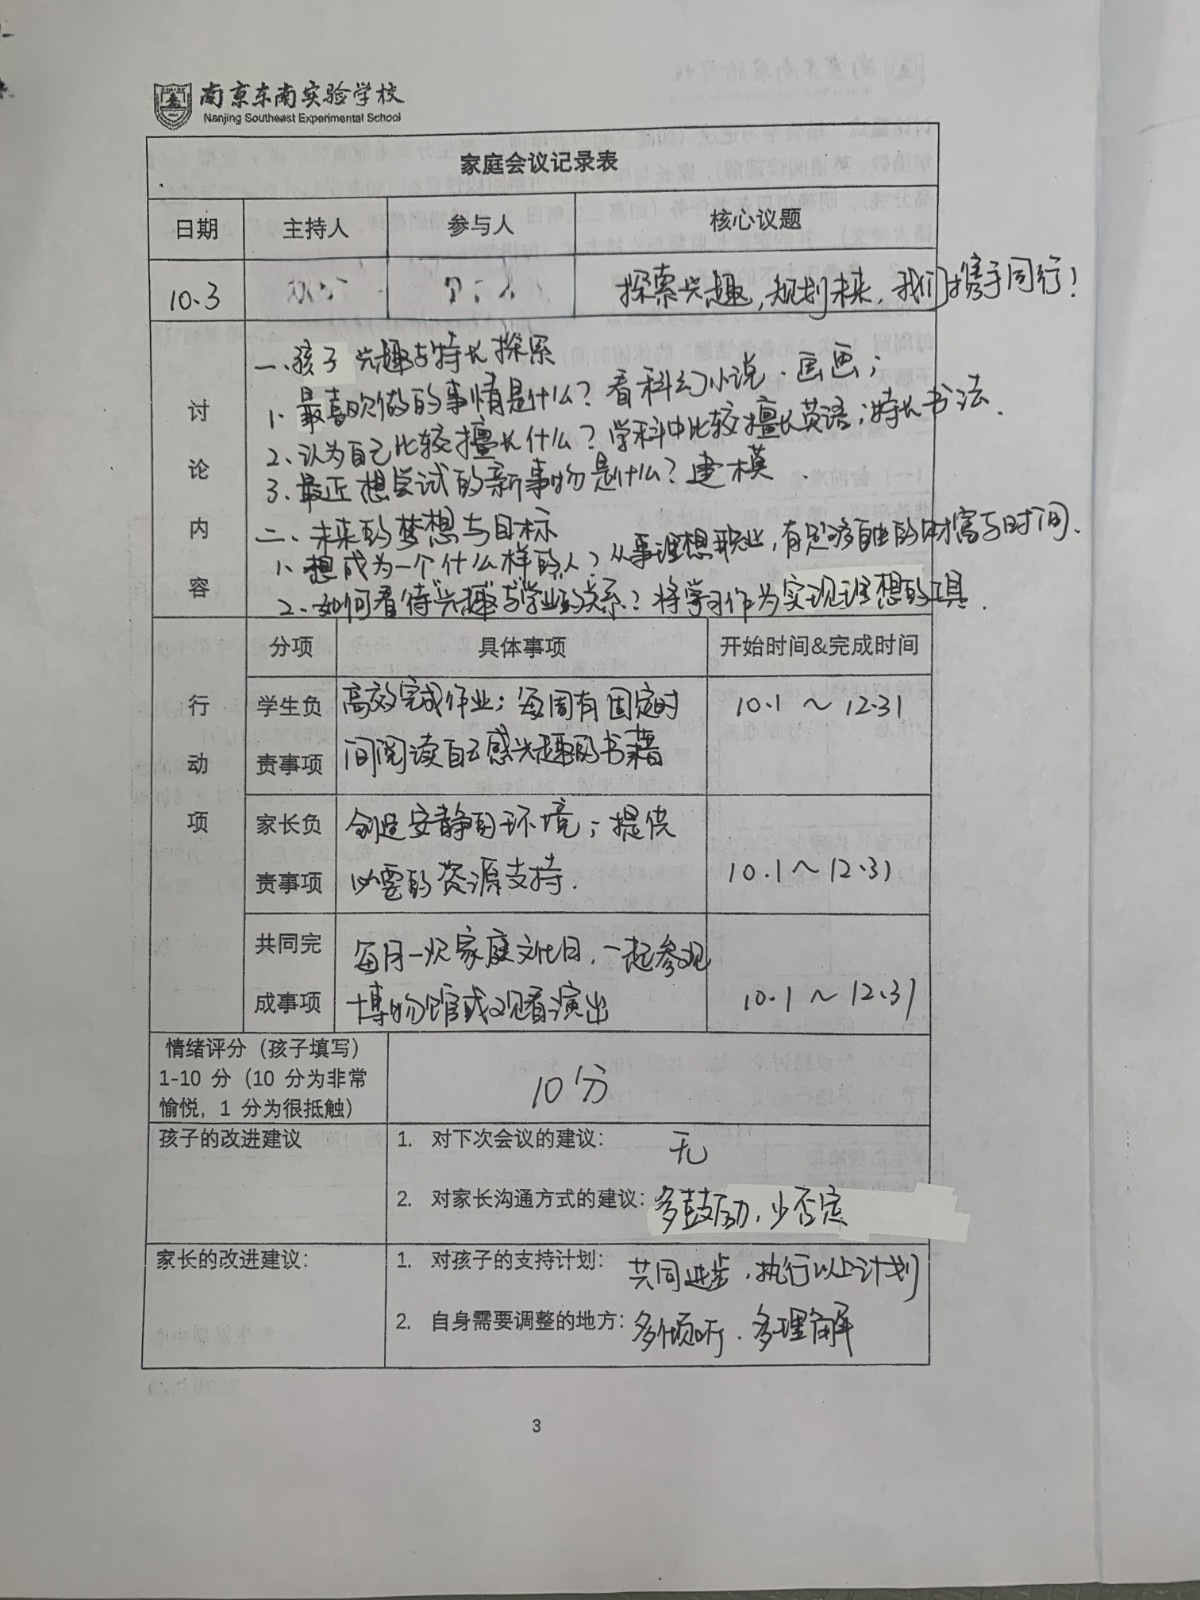 南京东南实验学校
Nanjing Southeast Experimental School
家庭会议记录表
日期 主持人 参与人 核心议题
10.3 探索兴趣，规划未来，我们携手同行！
讨论内容
一、孩子兴趣与特长探索
1、最喜欢做的事情是什么？看科幻小说、画画；
2、认为自己比较擅长什么？学科中比较擅长英语；特长书法.
3、最近想尝试的新事物是什么？建模.
二、未来的梦想与目标
1、想成为一个什么样的人？从事理想职业，有足够自由的财富与时间.
2、如何看待“兴趣”与学业的关系？将学习作为实现理想的工具.
行动项
分项 具体事项 开始时间&完成时间
学生负责事项
高效完成作业；每周有固定时
间阅读自己感兴趣的书籍
10.1～12.31
家长负责事项
创造安静的环境；提供
必要的资源支持.
10.1～12.31
共同完成事项
每月一次家庭文化日，一起参观
博物馆或观看演出
10.1～12.31
情绪评分（孩子填写）
1-10 分（10 分为非常
愉悦，1 分为很抵触）
10分
孩子的改进建议
1. 对下次会议的建议： 无
2. 对家长沟通方式的建议：多鼓励，少否定
家长的改进建议：
1. 对孩子的支持计划： 共同进步、执行以上计划
2. 自身需要调整的地方：多倾听、多理解
3